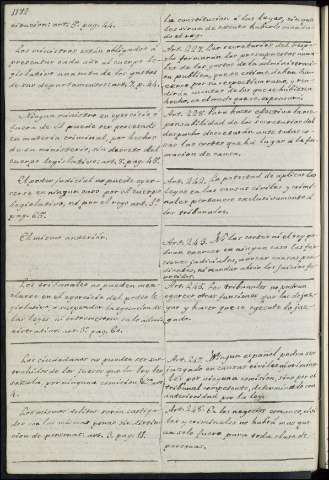 1172
sion: art. 5º pag. 44.
Los ministros estan obligados á
presentar cada año al cuerpo le-
gislativo una nota de los gastos
de sus departamentos: art. 7. p. 46.
Ningun ministro en ejercicio ó
fuera de él puede ser procesado
en materia criminal, por hechos
de su ministerio, sin decreto del
cuerpo legislativo: art. 8. pag. 46.
El poder judicial no puede ejer-
cerse en ningun caso por el cuerpo
legislativo, ni por el rey: art. 1º
pag. 60.
El mismo anterior.
Los tribunales no pueden mez-
clarse en el ejercicio del poder le-
gislativo, ó suspender la ejecucion de
las leyes, ni
administrativo: art. 3º pag. 60.
Los ciudadanos no pueden ser
de los jueces que la ley les
señala, por ninguna comision &ª art.
4.
Los mismos delitos serán castiga-
dos con las mismas penas sin distin-
cion de personas: art. 3. pag. 18.
la constitucion ó las leyes, sin que
les sirva de escusa haberlo manda-
do el rey.
Art. 227. Los secretarios del despa-
cho formarán los presupuestos anua-
les de los gastos de la administracion
pública, que se estime deban ha-
cerse por su respectivo ramo, y ren-
dirán cuentas de los que se hubieren
hecho, en el modo que se espresará.
Art. 228. Para hacer efectiva la res-
ponsabilidad de los secretarios del
despacho decretarán ante todas co-
sas las cortes que ha lugar á la for-
macion de causa.
Art. 242. La potestad de aplicar las
leyes en las causas civiles y crimi-
nales pertenece esclusivamente á
los tribunales.
Art. 243. Ni las cortes ni el rey po-
drán ejercer en ningun caso las fun-
ciones judiciales, avocar causas pen-
dientes, ni mandar abrir los juicios fe-
necidos.
Art. 245. Los tribunales no podrán
ejercer otras funciones que las de juz-
gar y hacer que se ejecute lo juz-
gado.
Art. 247. Ningun español podrá ser
juzgado en causas civiles ni crimina-
les por ninguna comision, sino por el
tribunal competente, determinado con
anterioridad por la ley.
Art. 248. En los negocios comunes, civi-
les y criminales no habrá mas que
un solo fuero para toda clase de
personas.